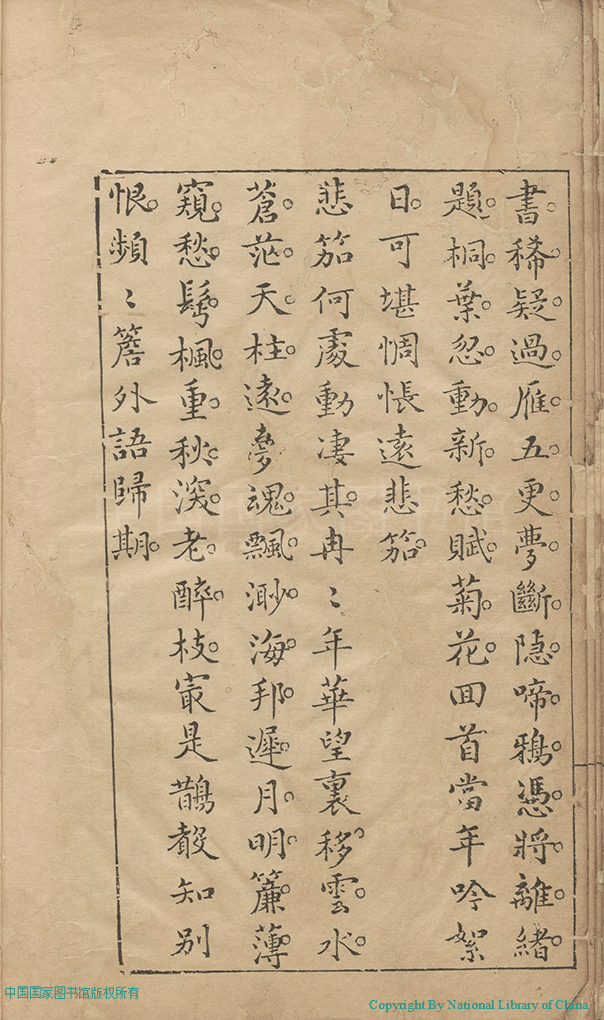 書稀疑過雁五更夢斷隐啼鴉憑將離緒
題桐葉忍動新愁賦菊花回首當年吟絮
日可堪惆悵遠悲笳
悲笳何處動凄其冉〻年華望裏移雲水
蒼茫天柱遠夢魂飄渺海邦遲月明簾薄
窺愁鬂楓重秋深老醉枝寂是鵲聲知別
恨頻〻簷外語歸期
中国国家图书馆版权所有
Copyright By National Library of China